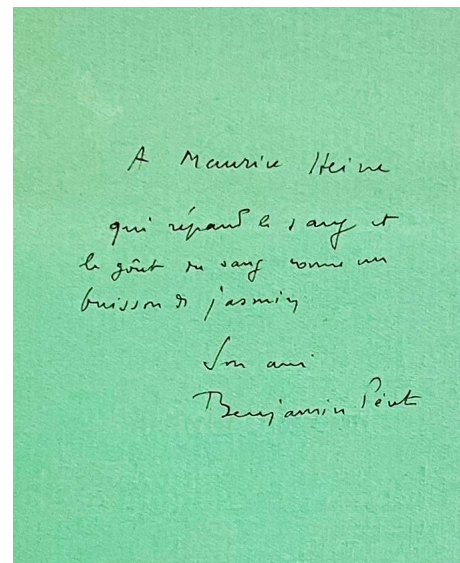 A Maurice Heine
qui répand le sang et
le goût du sang comme un
buisson de jasmin
Son ami
Benjamin Péret